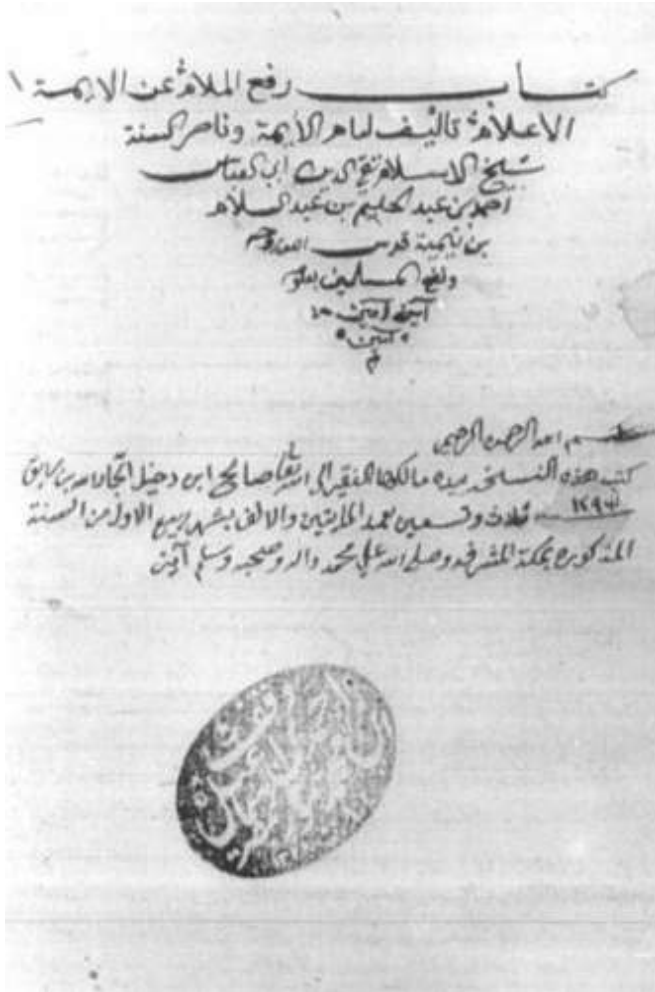 كتاب رفع الملام عن الايمة ١
الاعلام تاليف امام الأيمة وناصر السنة
شيخ الاسلام تقي الدين ابي العباس
احمد بن عبد الحليم بن عبد السلام
بن تيمية قدس الله روحه
ونفع المسلمين بعلومه
آمين آمين
آمين
م
بسم الله الرحمن الرحيم
كتب هذه النسخه بيده مالكها الفقير الى الله تعالى صالح ابن دخيل الجارالله بن سابق
١٢٩٣ ثلاث وتسعين بعد المايتين والالف بشهر ربيع الاول من السنة
المذكوره بمكة المشرفه وصلى الله على محمد واله وصحبه وسلم آمين